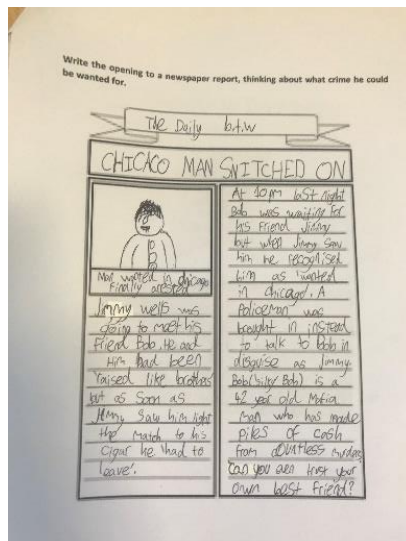 Write the opening to a newspaper report, thinking about what crime he could
be wanted for.
The Daily b.t.w
CHICACO MAN SNITCHED ON
Man wanted in chicago
Finally arrested
Jimmy wells was
going to meet his
friend Bob. He and
Him had been
raised like brothers
but as soon as
Jimmy saw him light
the match to his
cigar he 'had to
leave'.
At 10pm last night
Bob was waiting for
his friend Jimmy
but when Jimmy saw
him he recognised
him as wanted
in chicago. A
Policeman was
brought in instead
to talk to bob in
disguise as Jimmy.
Bob (silky Bob) is a
42 year old Mafia
man who has made
piles of cash
from countless murders
Can you even trust your
own best friend?